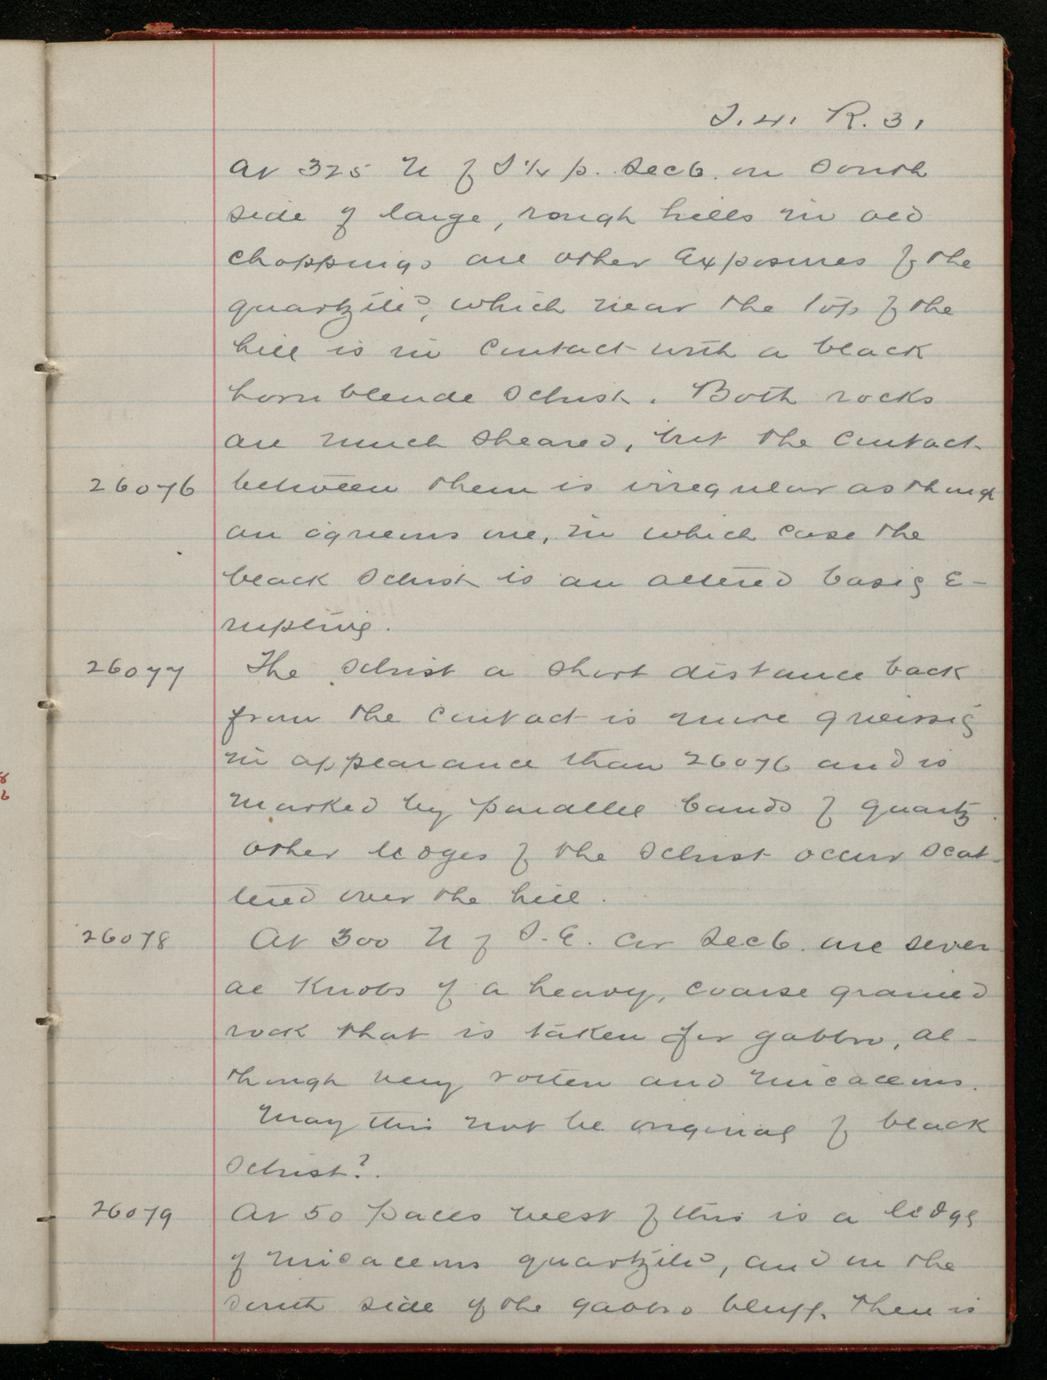 T. 41. R. 31
At 325 N of S 1/4 p. Sec 6. on South
side of large, rough hills in old
choppings are other exposures of the
quartzite, which near the top of the
hill is in contact with a black
hornblende schist. Both rocks
are much sheared, but the contact
26076 between them is irregular as though
an igneous one, in which case the
black schist is an altered basic e-
ruptive.
26077 The schist a short distance back
from the contact is more gneissic
in appearance than 26076 and is
marked by parallel bands of quartz.
Other ledges of the schist occur scat-
tered over the hill.
26078 At 300 N of S.E. cor Sec 6. are sever
al knobs of a heavy, coarse grained
rock that is taken for gabbro, al-
though very rotten and micaceous.
May this not be original of black
schist?.
26079 At 50 paces west of this is a ledge
of micaceous quartzite, and on the
south side of the gabbro bluff, there is